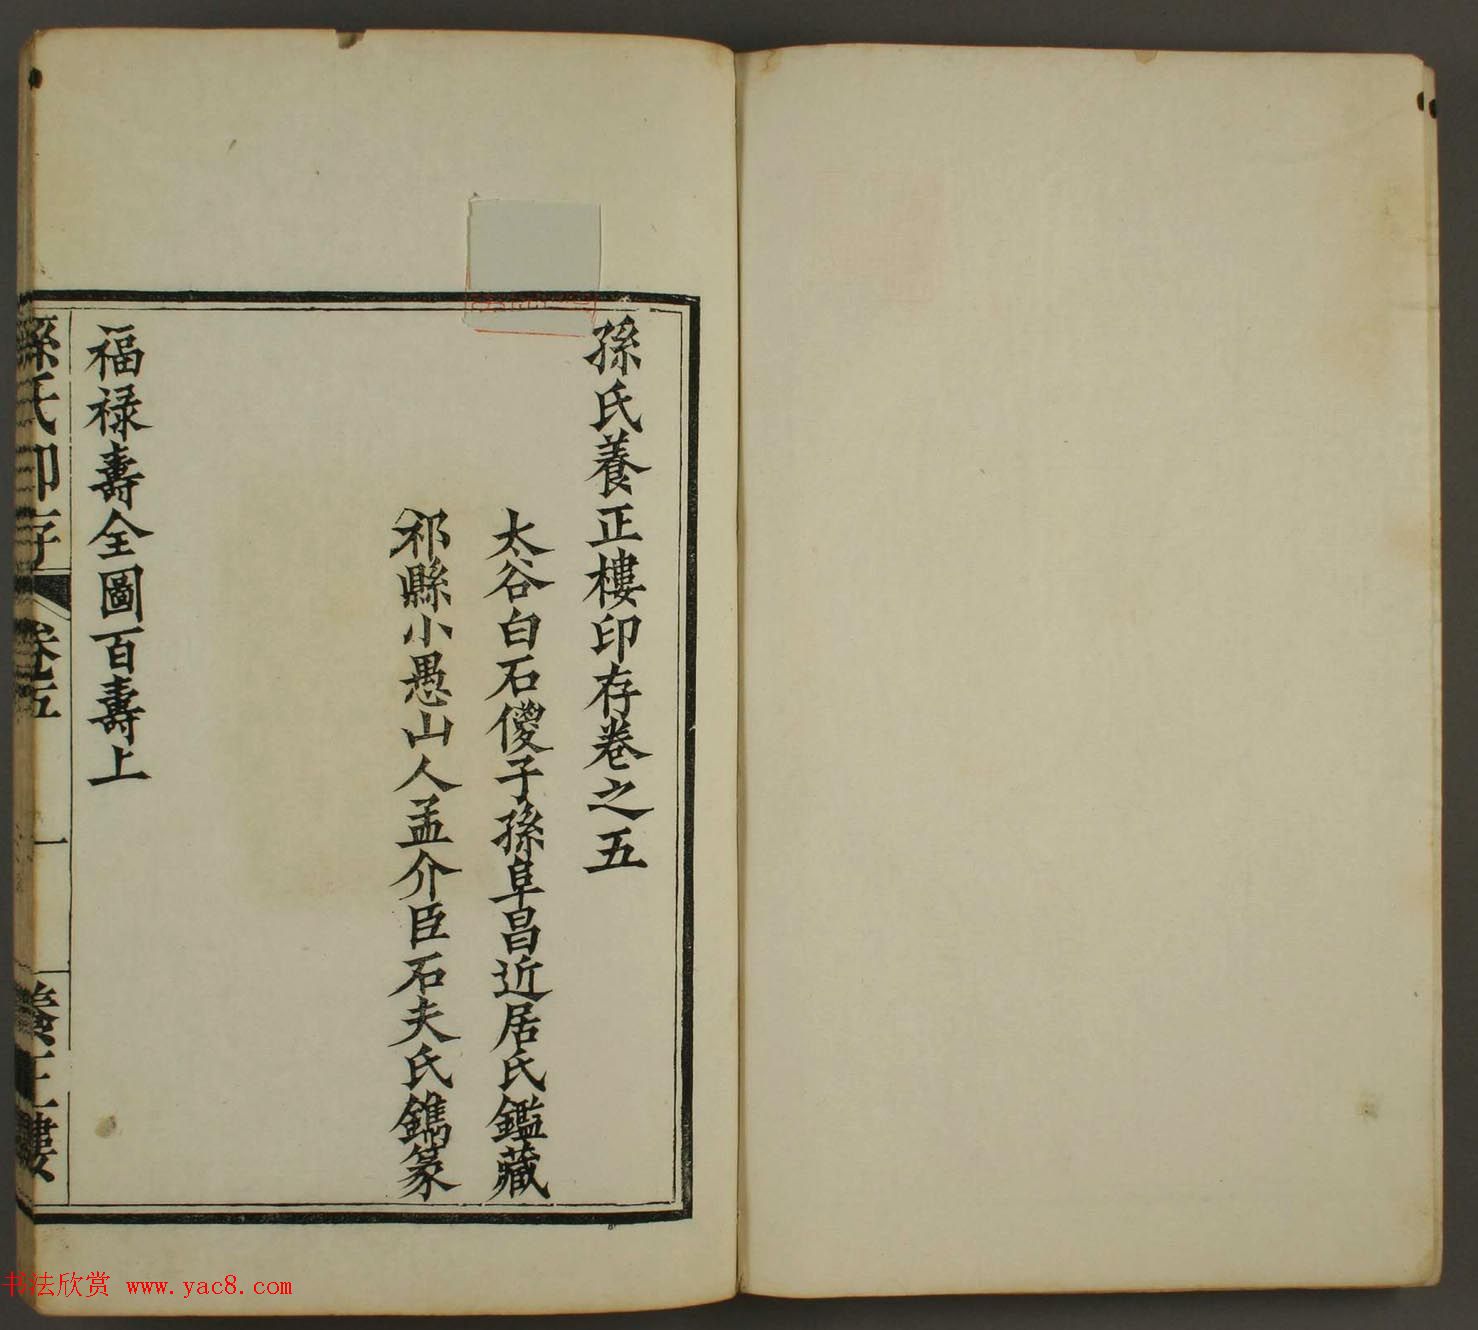 孫氏養正樓印存卷之五
太谷白石傻子孫阜昌近居氏鑑藏
祁縣小愚山人孟介臣石夫氏鐫篆
福禄壽全圖百壽上
孫氏印存 卷五 一 養正樓
书法欣赏 www.yac8.com